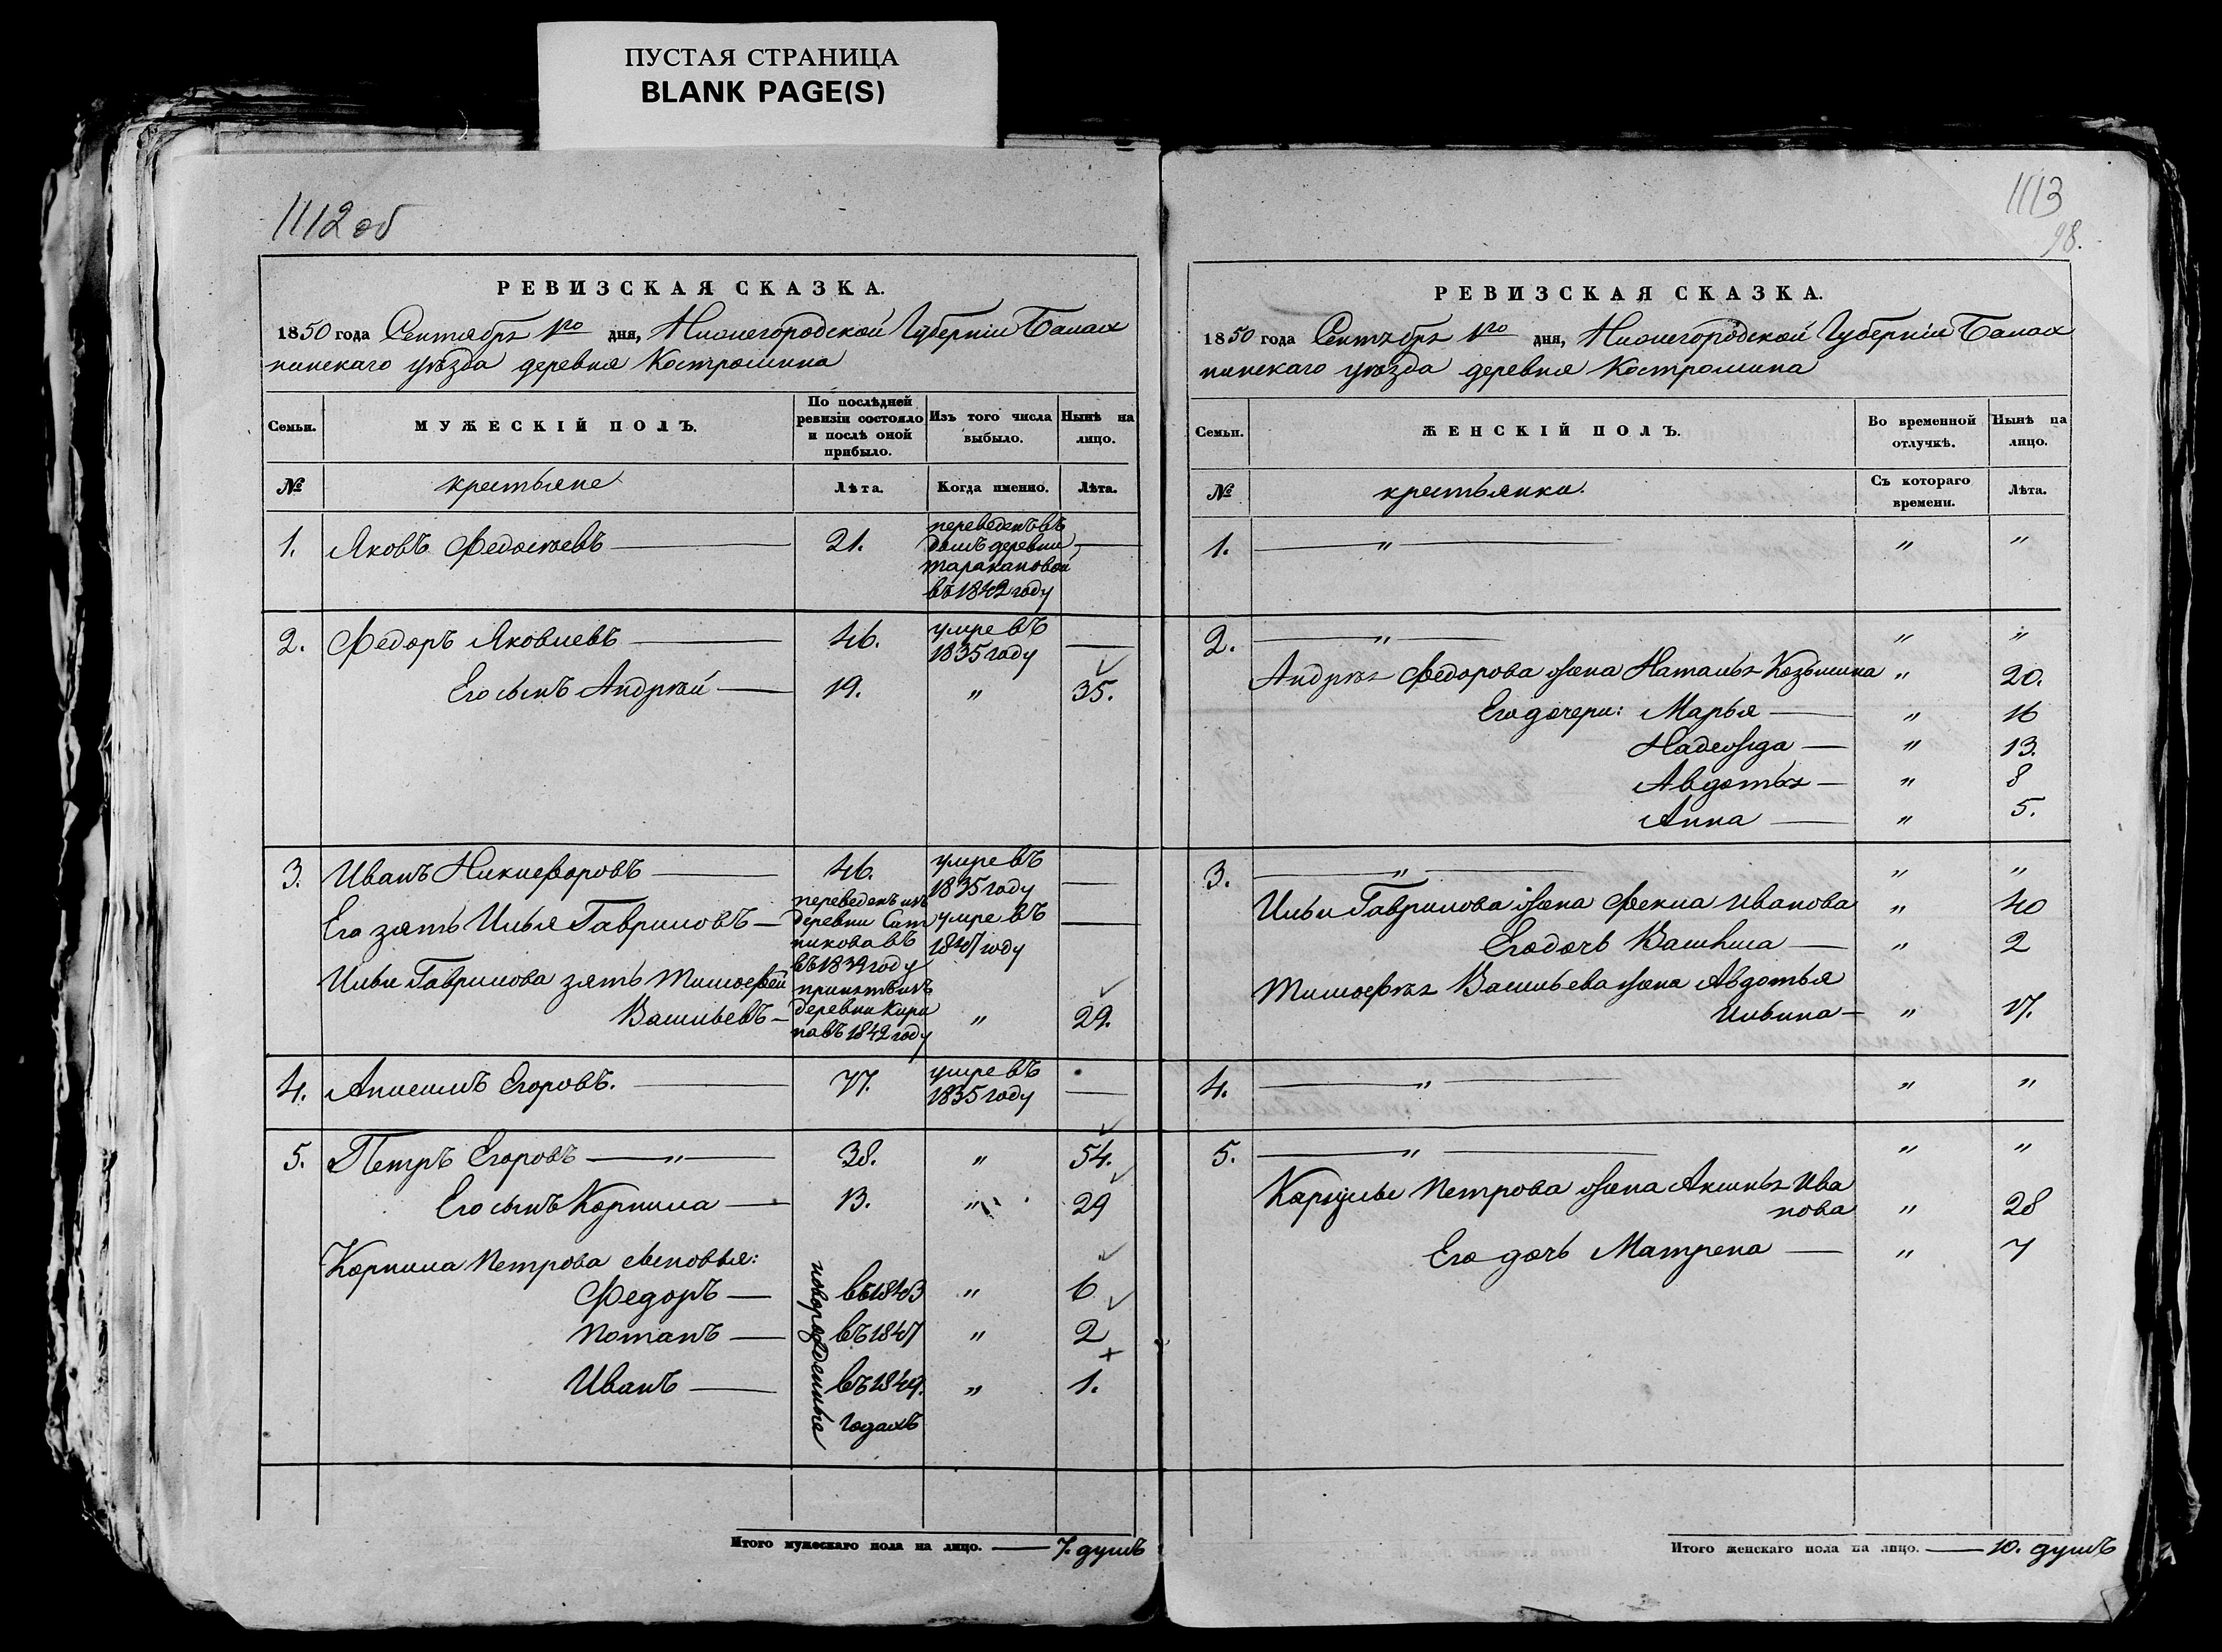 ПУСТАЯ СТРАНИЦА
BLANK PAGE(S)
1112 об
РЕВИЗСКАЯ СКАЗКА.
1850 года Сентябрь 1го дня, Нижегородской Губернiи Балах
нинскаго уѣзда деревня Костромина
Семьи.
МУЖЕСКIЙ ПОЛЪ.
По послѣдней
ревизiи состояло
и послѣ оной
прибыло.
Изъ того числа
выбыло.
Нынѣ на
лицо.
№
крестьяне
Лѣта.
Когда именно.
Лѣта.
1. Яковъ Федосѣевъ — 21.
переведенъ въ
домъ деревни
Таракановой
въ 1842 году
—
2. Федоръ Яковлевъ — 46.
умре въ
1835 году
—
Его сынъ Андрѣй — 19. " 35.
3. Иванъ Никифоровъ — 46.
умре въ
1835 году
—
Его зять Илья Гавриловъ —
переведенъ изъ
деревни
въ
въ 1839 году
умре въ
1847 году
—
Ильи Гаврилова зять Тимофей
Васильевъ —
принятъ изъ
деревни Кири
на въ 1842 году
" 29.
4. Анисимъ Егоровъ. — 77.
умре въ
1835 году
—
5. Петръ Егоровъ — " — 38. " 54.
Его сынъ Корнила — 13. " 29
Корнила Петрова сыновья:
новорожденные
Федоръ — въ 1843 " 6
Потапъ — въ 1847 " 2
Иванъ — въ 1849. " 1.
годахъ
Итого мужескаго пола на лицо. — 7. душъ
1113
98.
РЕВИЗСКАЯ СКАЗКА.
1850 года Сентябрь 1го дня, Нижегородской Губернiи Балах
нинскаго уѣзда деревня Костромина
Семьи.
ЖЕНСКIЙ ПОЛЪ.
Во временной
отлучкѣ.
Нынѣ на
лицо.
№
крестьянки.
Съ котораго
времени.
Лѣта.
1. — " — " "
2. — " — " "
Андрѣя Федорова жена Наталья Козьмина " 20.
Его дочери: Марья — " 16
Надежда — " 13.
Авдотья — " 8
Анна — " 5.
3. — " — " "
Ильи Гаврилова жена Фекла Иванова " 40
Его дочь Василиса — " 2
Тимофѣя Васильева жена Авдотья
Ильина — " 17.
4. — " — " "
5. — " — " "
Карнилы Петрова жена Аксинья Ива
нова " 28
Его дочь Матрена — " 7
Итого женскаго пола на лицо. — 10. душъ